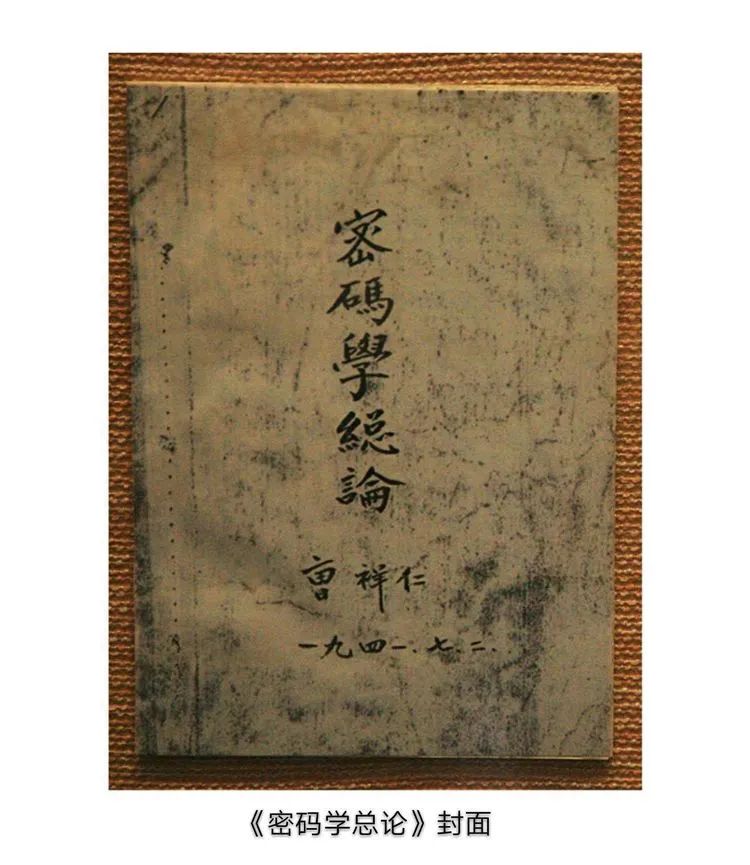 密碼學總論
曹祥仁
一九四一.七.二.
《密码学总论》封面